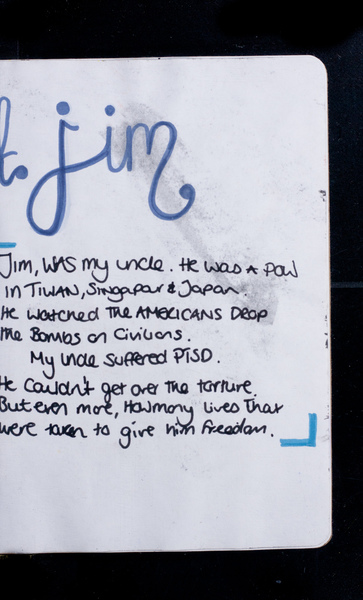 t. jim
Jim, WAS my uncle. He was A POW
in TIWAN, Singapour & Japan.
He watched THE AMERICANS DROP
the Bombs on Civilions.
My Uncle suffered PTSD.
He Couldn't get over the torture.
But even more, How many lives that
were taken to give him freedom.